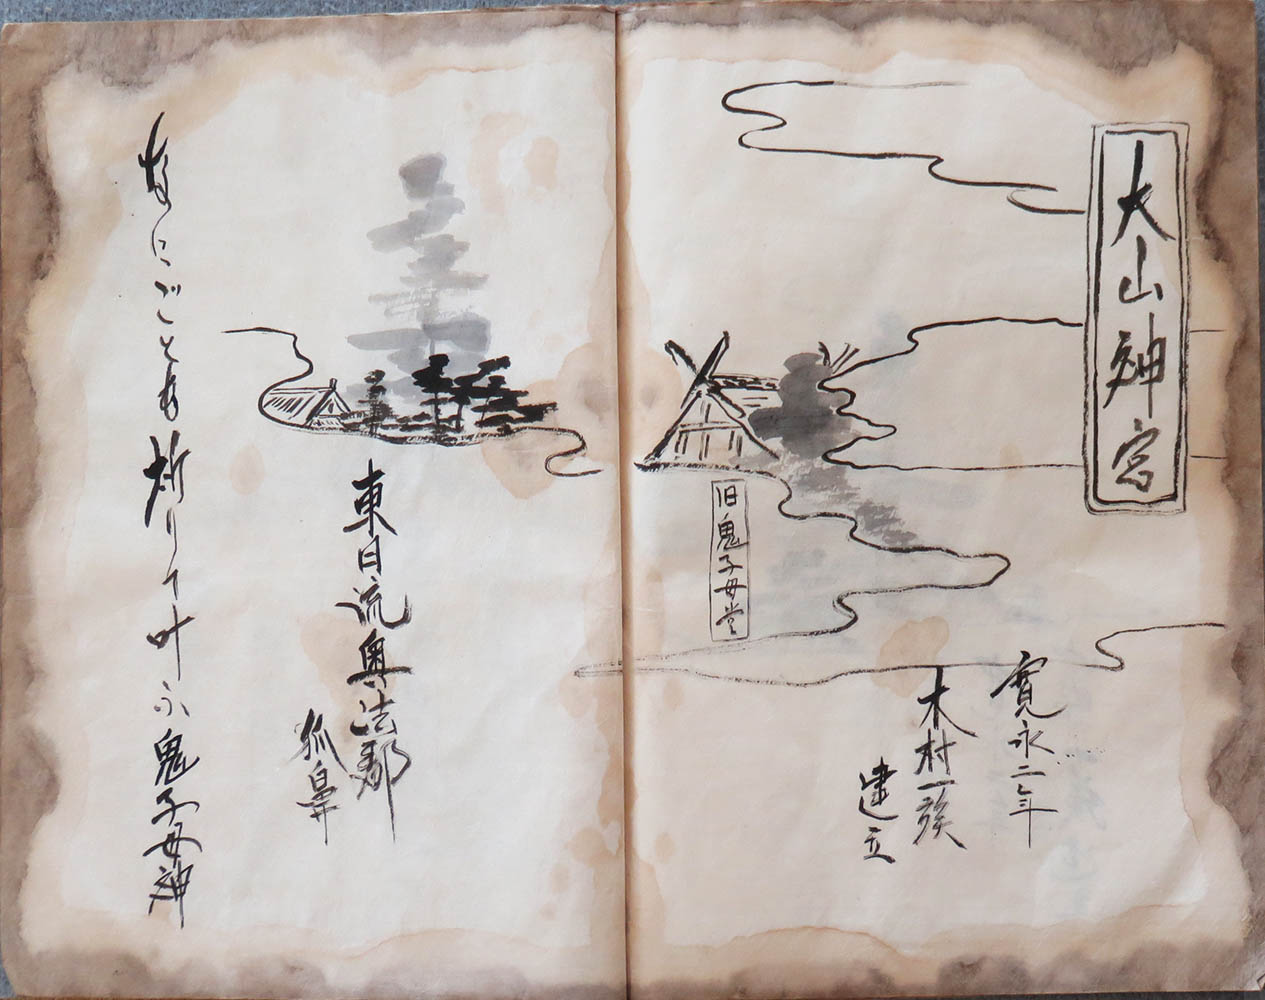 大山神宮
寛永二年
木村一族
建立
旧鬼子母堂
東日流奥法郡
狐鼻
なにごとも祈りて叶ふ鬼子母神